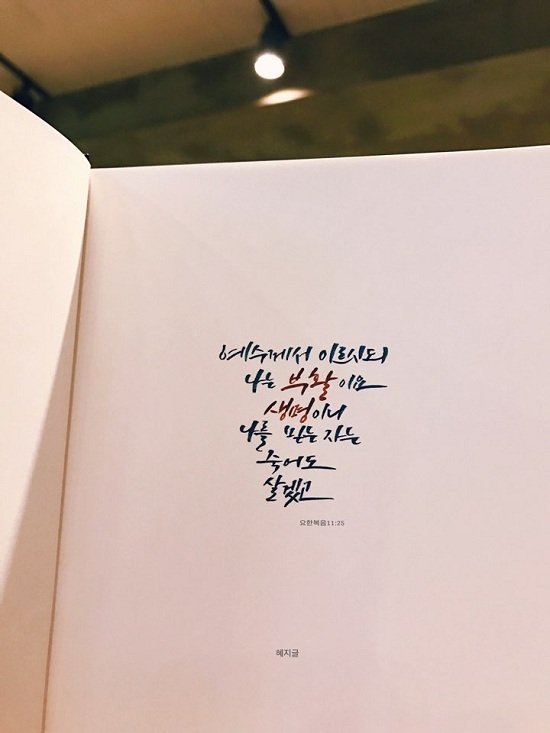 예수께서 이르시되
나는 부활이요
생명이니
나를 믿는 자는
죽어도
살겠고
요한복음11:25
혜지글